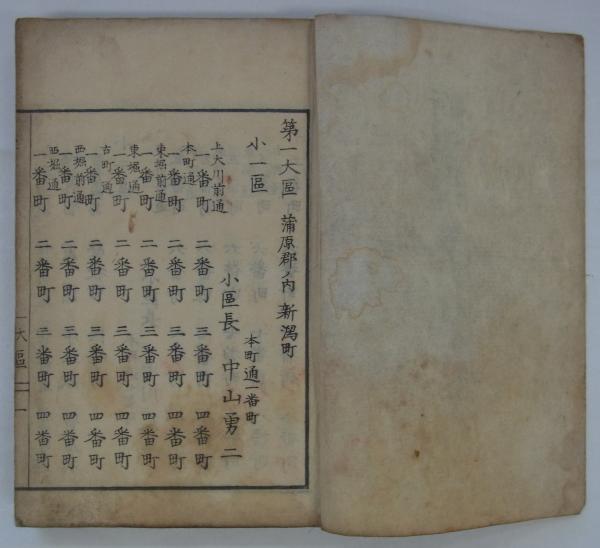 第一大區 蒲原郡ノ内 新潟町
小一區
本町通一番町
小區長 中山勇二
上大川前通
一番町 二番町 三番町 四番町
本町通
一番町 二番町 三番町 四番町
東堀前通
一番町 二番町 三番町 四番町
東堀通
一番町 二番町 三番町 四番町
古町通
一番町 二番町 三番町 四番町
西堀前通
一番町 二番町 三番町 四番町
西堀通
一番町 二番町 三番町 四番町
一大區